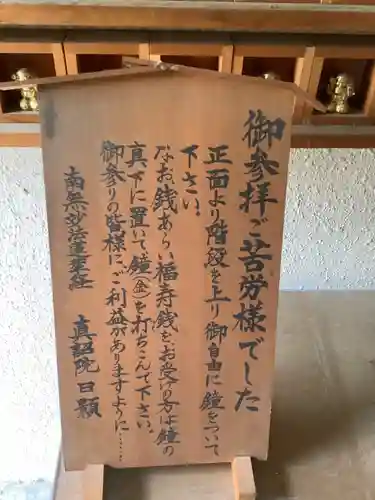 御参拝ご苦労様でした
正面より階段を上り御自由に鐘をついて
下さい。
なお、銭あらい福寿銭を、お受けの方は鐘の
真下に置いて鐘(金)を打ちこんで下さい。
御参りの皆様に、ご利益がありますように……
南無妙法蓮華経
真詔院日顕